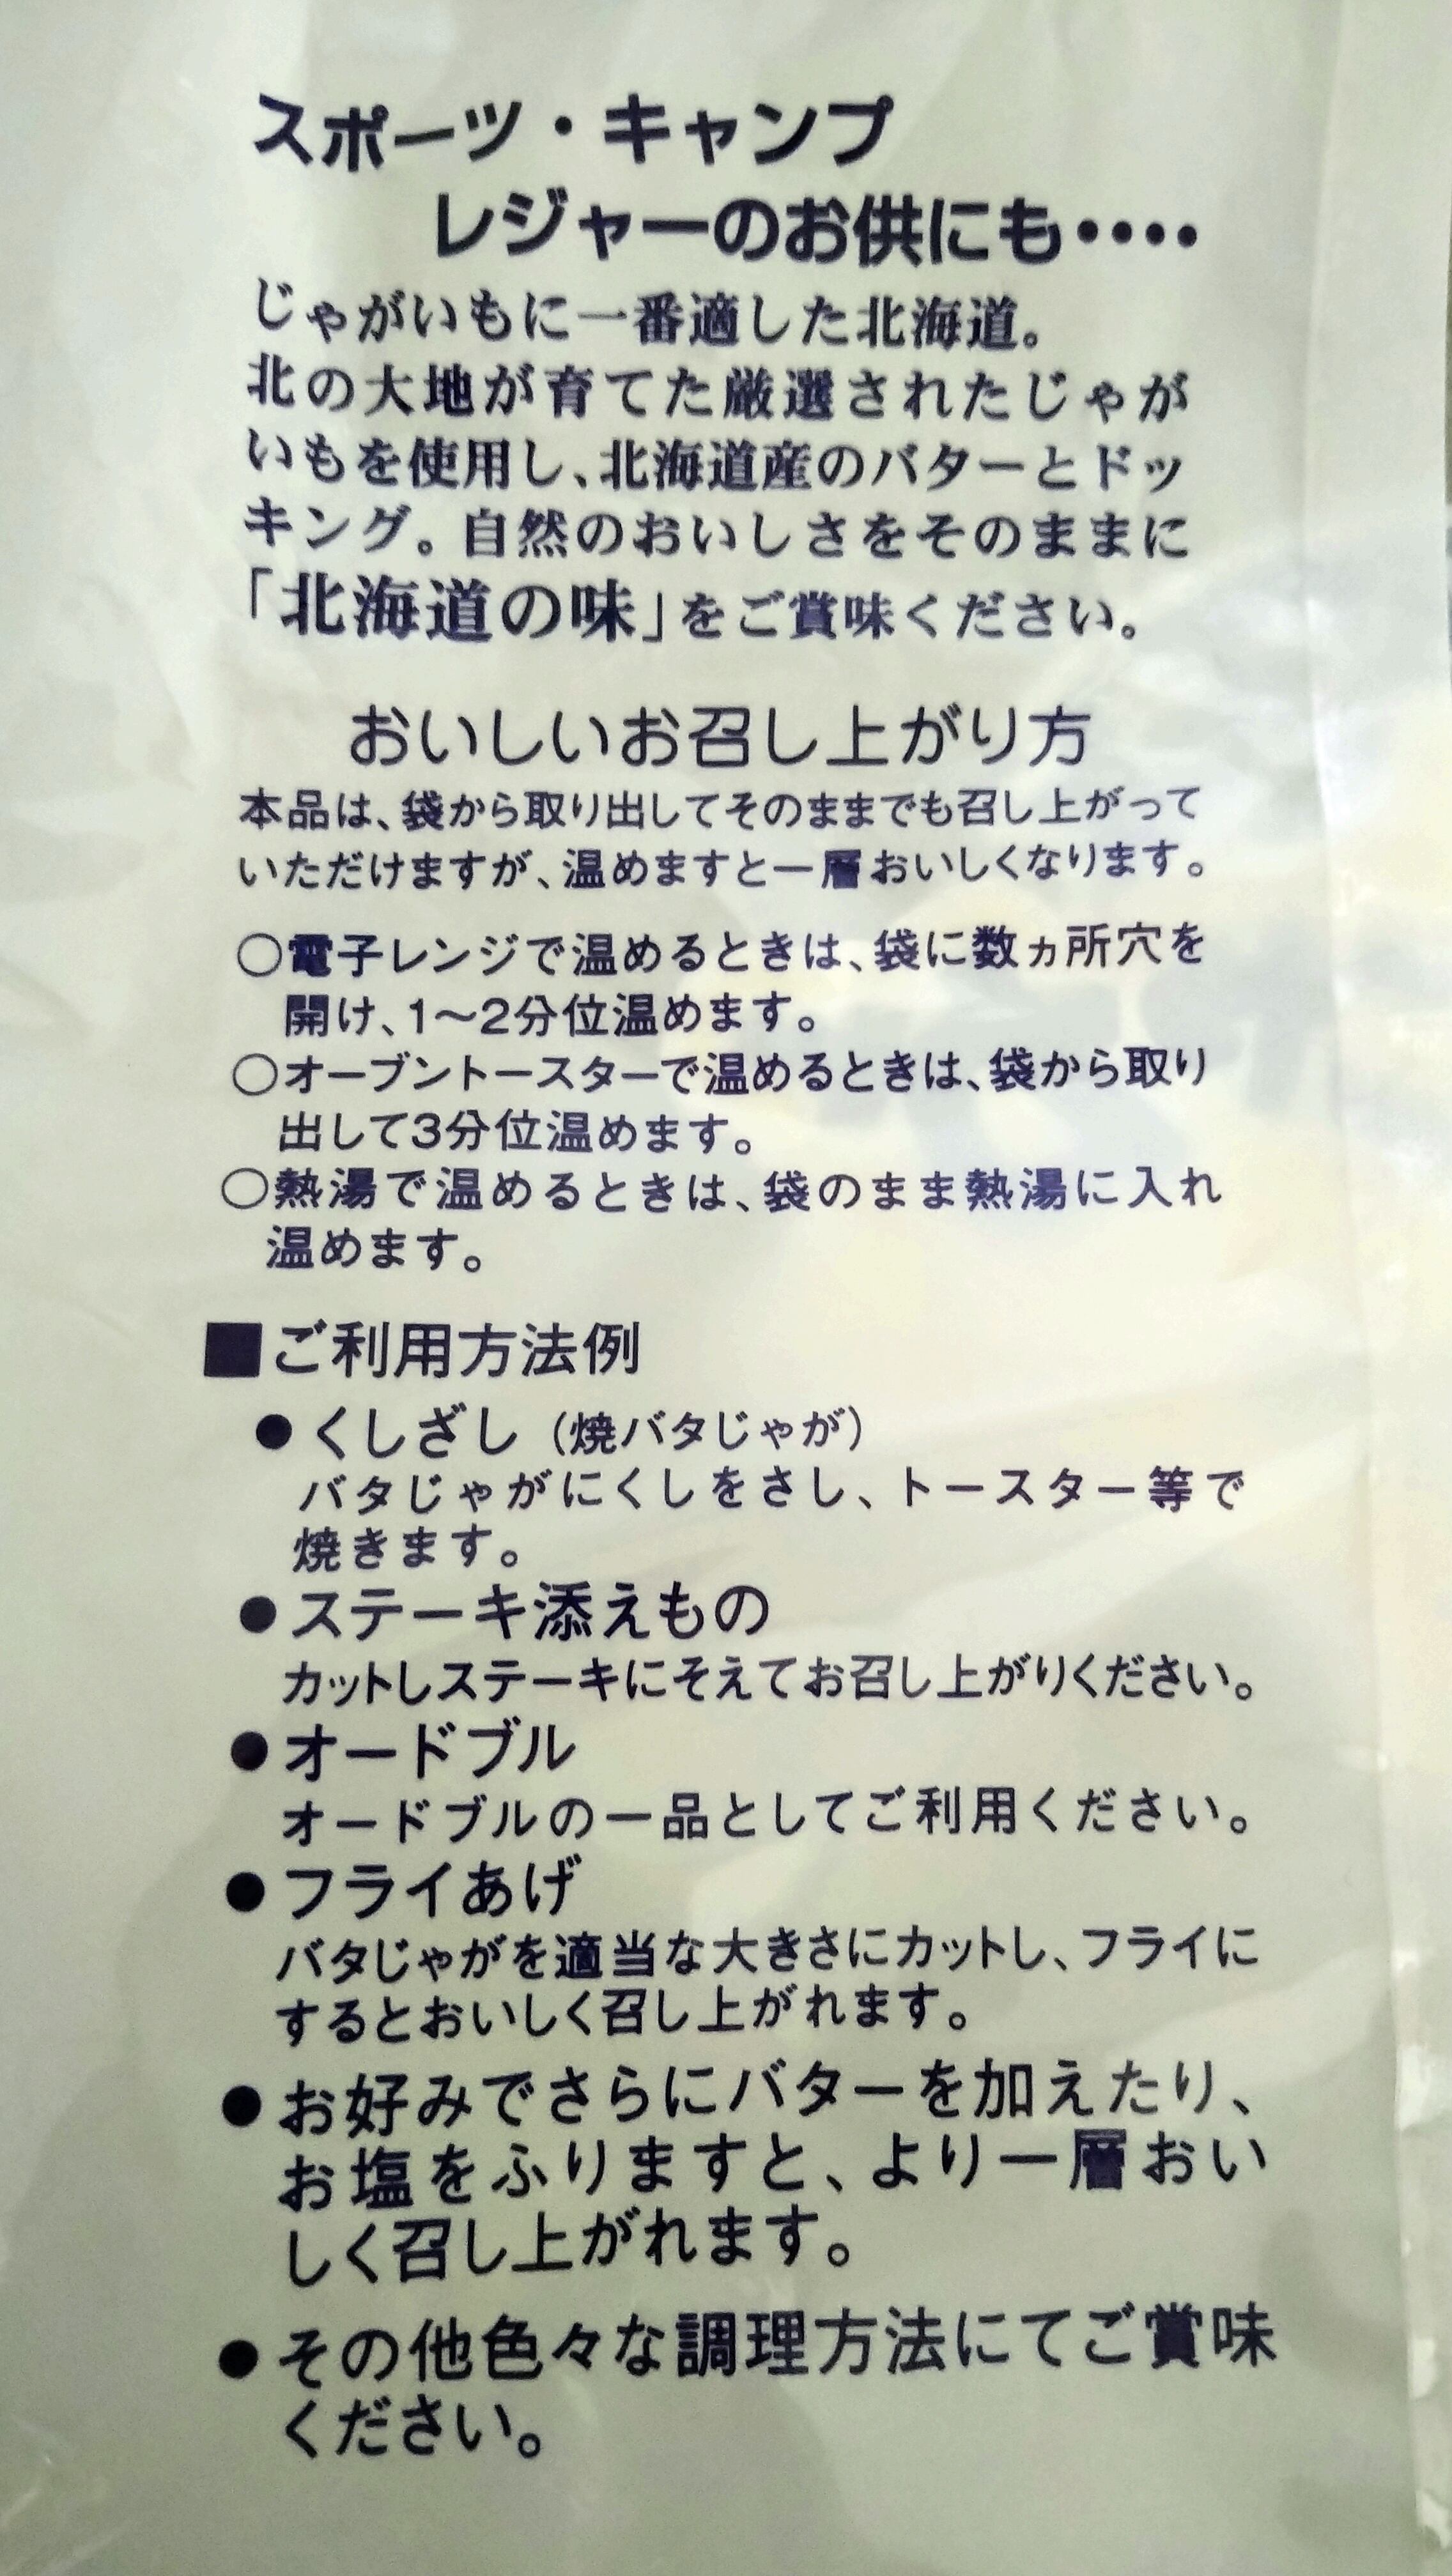 スポーツ・キャンプ
レジャーのお供にも・・・・
じゃがいもに一番適した北海道。
北の大地が育てた厳選されたじゃが
いもを使用し、北海道産のバターとドッ
キング。自然のおいしさをそのままに
「北海道の味」をご賞味ください。
おいしいお召し上がり方
本品は、袋から取り出してそのままでも召し上がって
いただけますが、温めますと一層おいしくなります。
○電子レンジで温めるときは、袋に数ヵ所穴を
開け、1〜2分位温めます。
○オーブントースターで温めるときは、袋から取り
出して3分位温めます。
○熱湯で温めるときは、袋のまま熱湯に入れ
温めます。
■ご利用方法例
●くしざし（焼バタじゃが）
バタじゃがにくしをさし、トースター等で
焼きます。
●ステーキ添えもの
カットしステーキにそえてお召し上がりください。
●オードブル
オードブルの一品としてご利用ください。
●フライあげ
バタじゃがを適当な大きさにカットし、フライに
するとおいしく召し上がれます。
●お好みでさらにバターを加えたり、
お塩をふりますと、より一層おい
しく召し上がれます。
●その他色々な調理方法にてご賞味
ください。